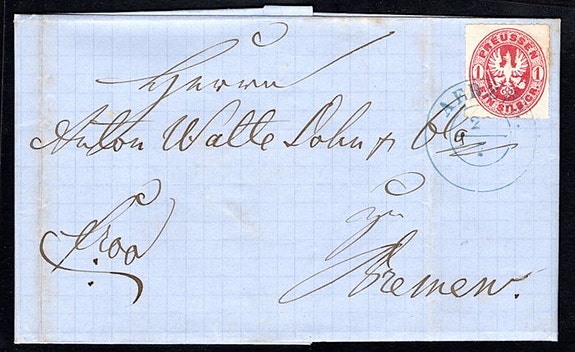 PREUSSEN
1 1
EIN SILBGR.
Herrn
Anton Walte Sohn & Co
franco
zu
Bremen.